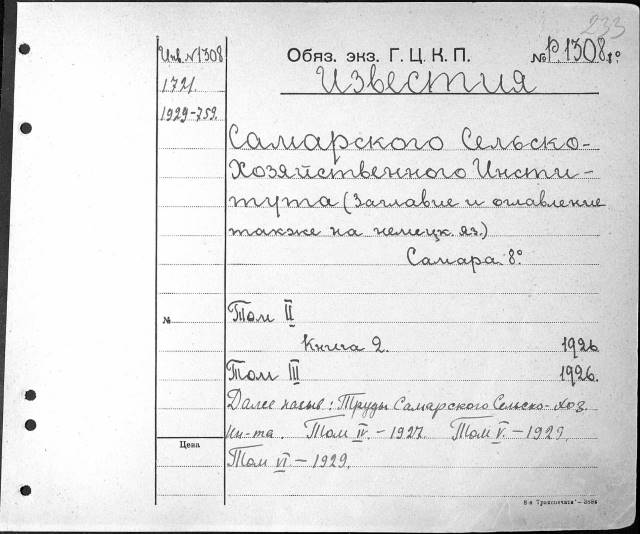 233
Инв. №1308 Обяз. экз. Г. Ц. К. П. № Р. 1308 8°
1721. Известия
1929-752.
Самарского Сельско-
Хозяйственного Инсти-
тута (Заглавие и оглавление
также на немецк. яз.)
Самара. 8°
№ Том II
Книга 2. 1926
Том III 1926.
Далее назыв: Труды Самарского Сельско-хоз.
Ин-та. Том IV.-1927. Том V.-1929.
Цена
Том VI-1929.